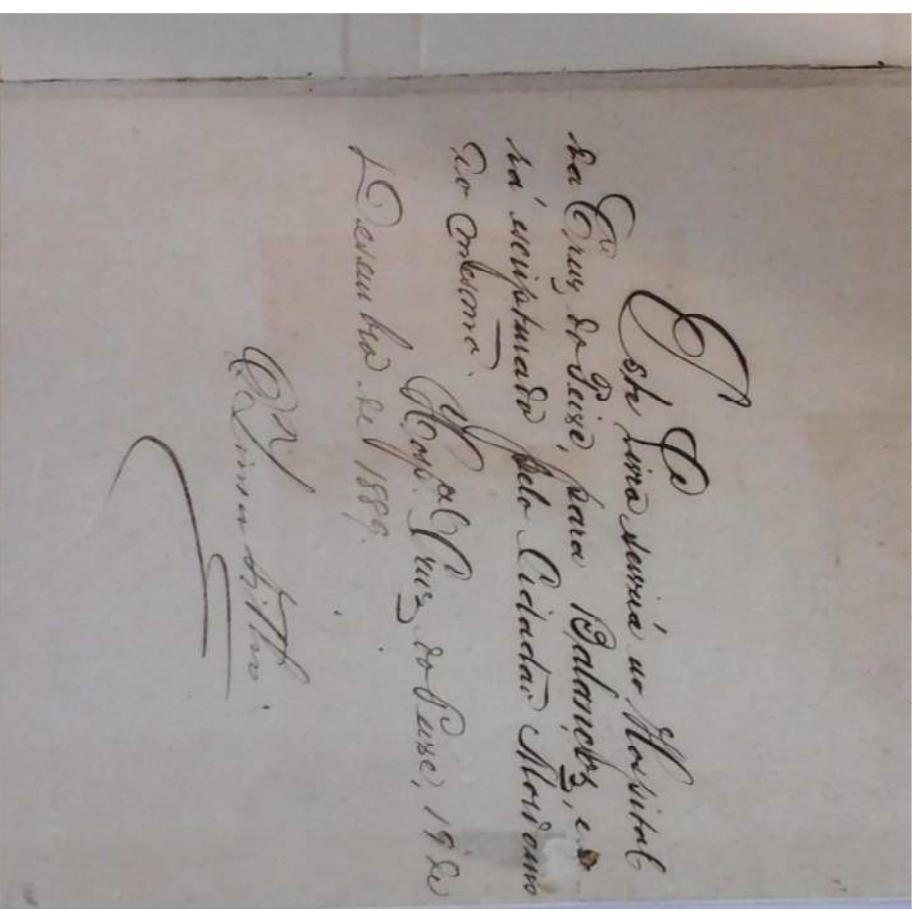 Este Livro servirá no Hospital
da Cruz do Peixe, para Balanços, e
rá escripturado pelo Cidadão Mordomo
do mesmo.
Hospal Cruz do Peixe, 19 de
Dezembro de 1889.